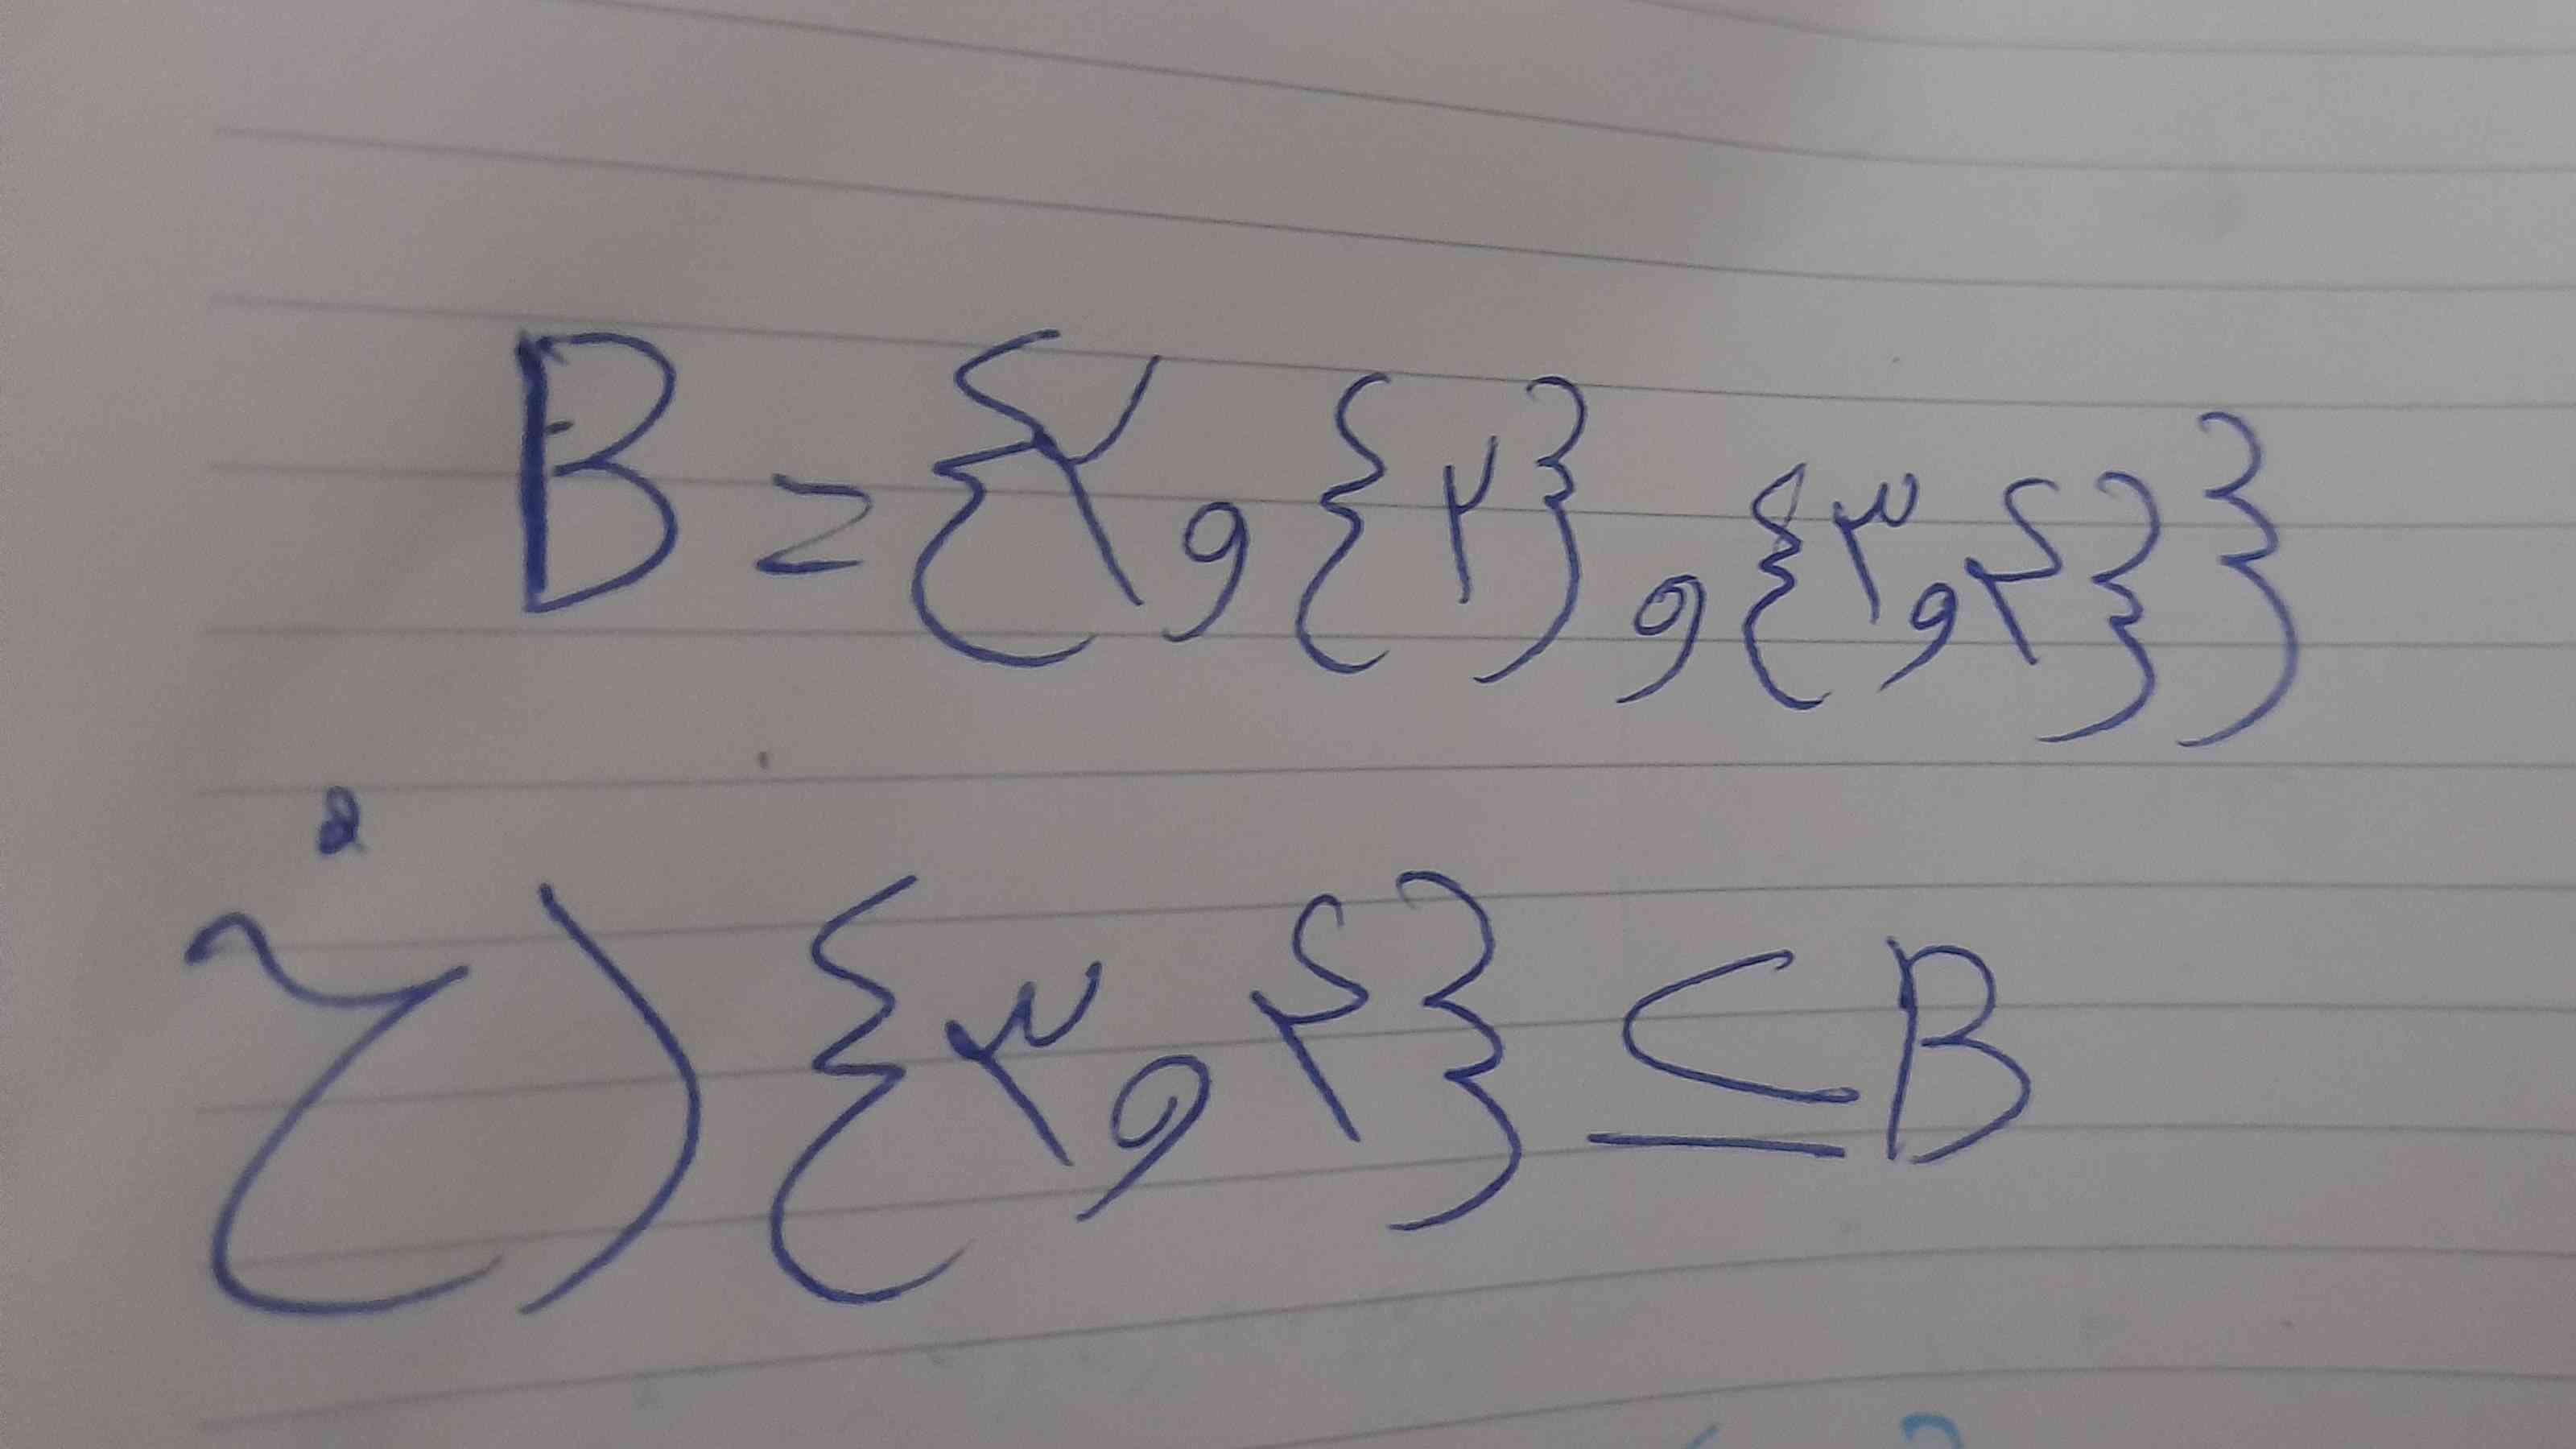 B = {۲, {۲}, {۳, ۴}}
خ) {۳, ۴} ⊆ B